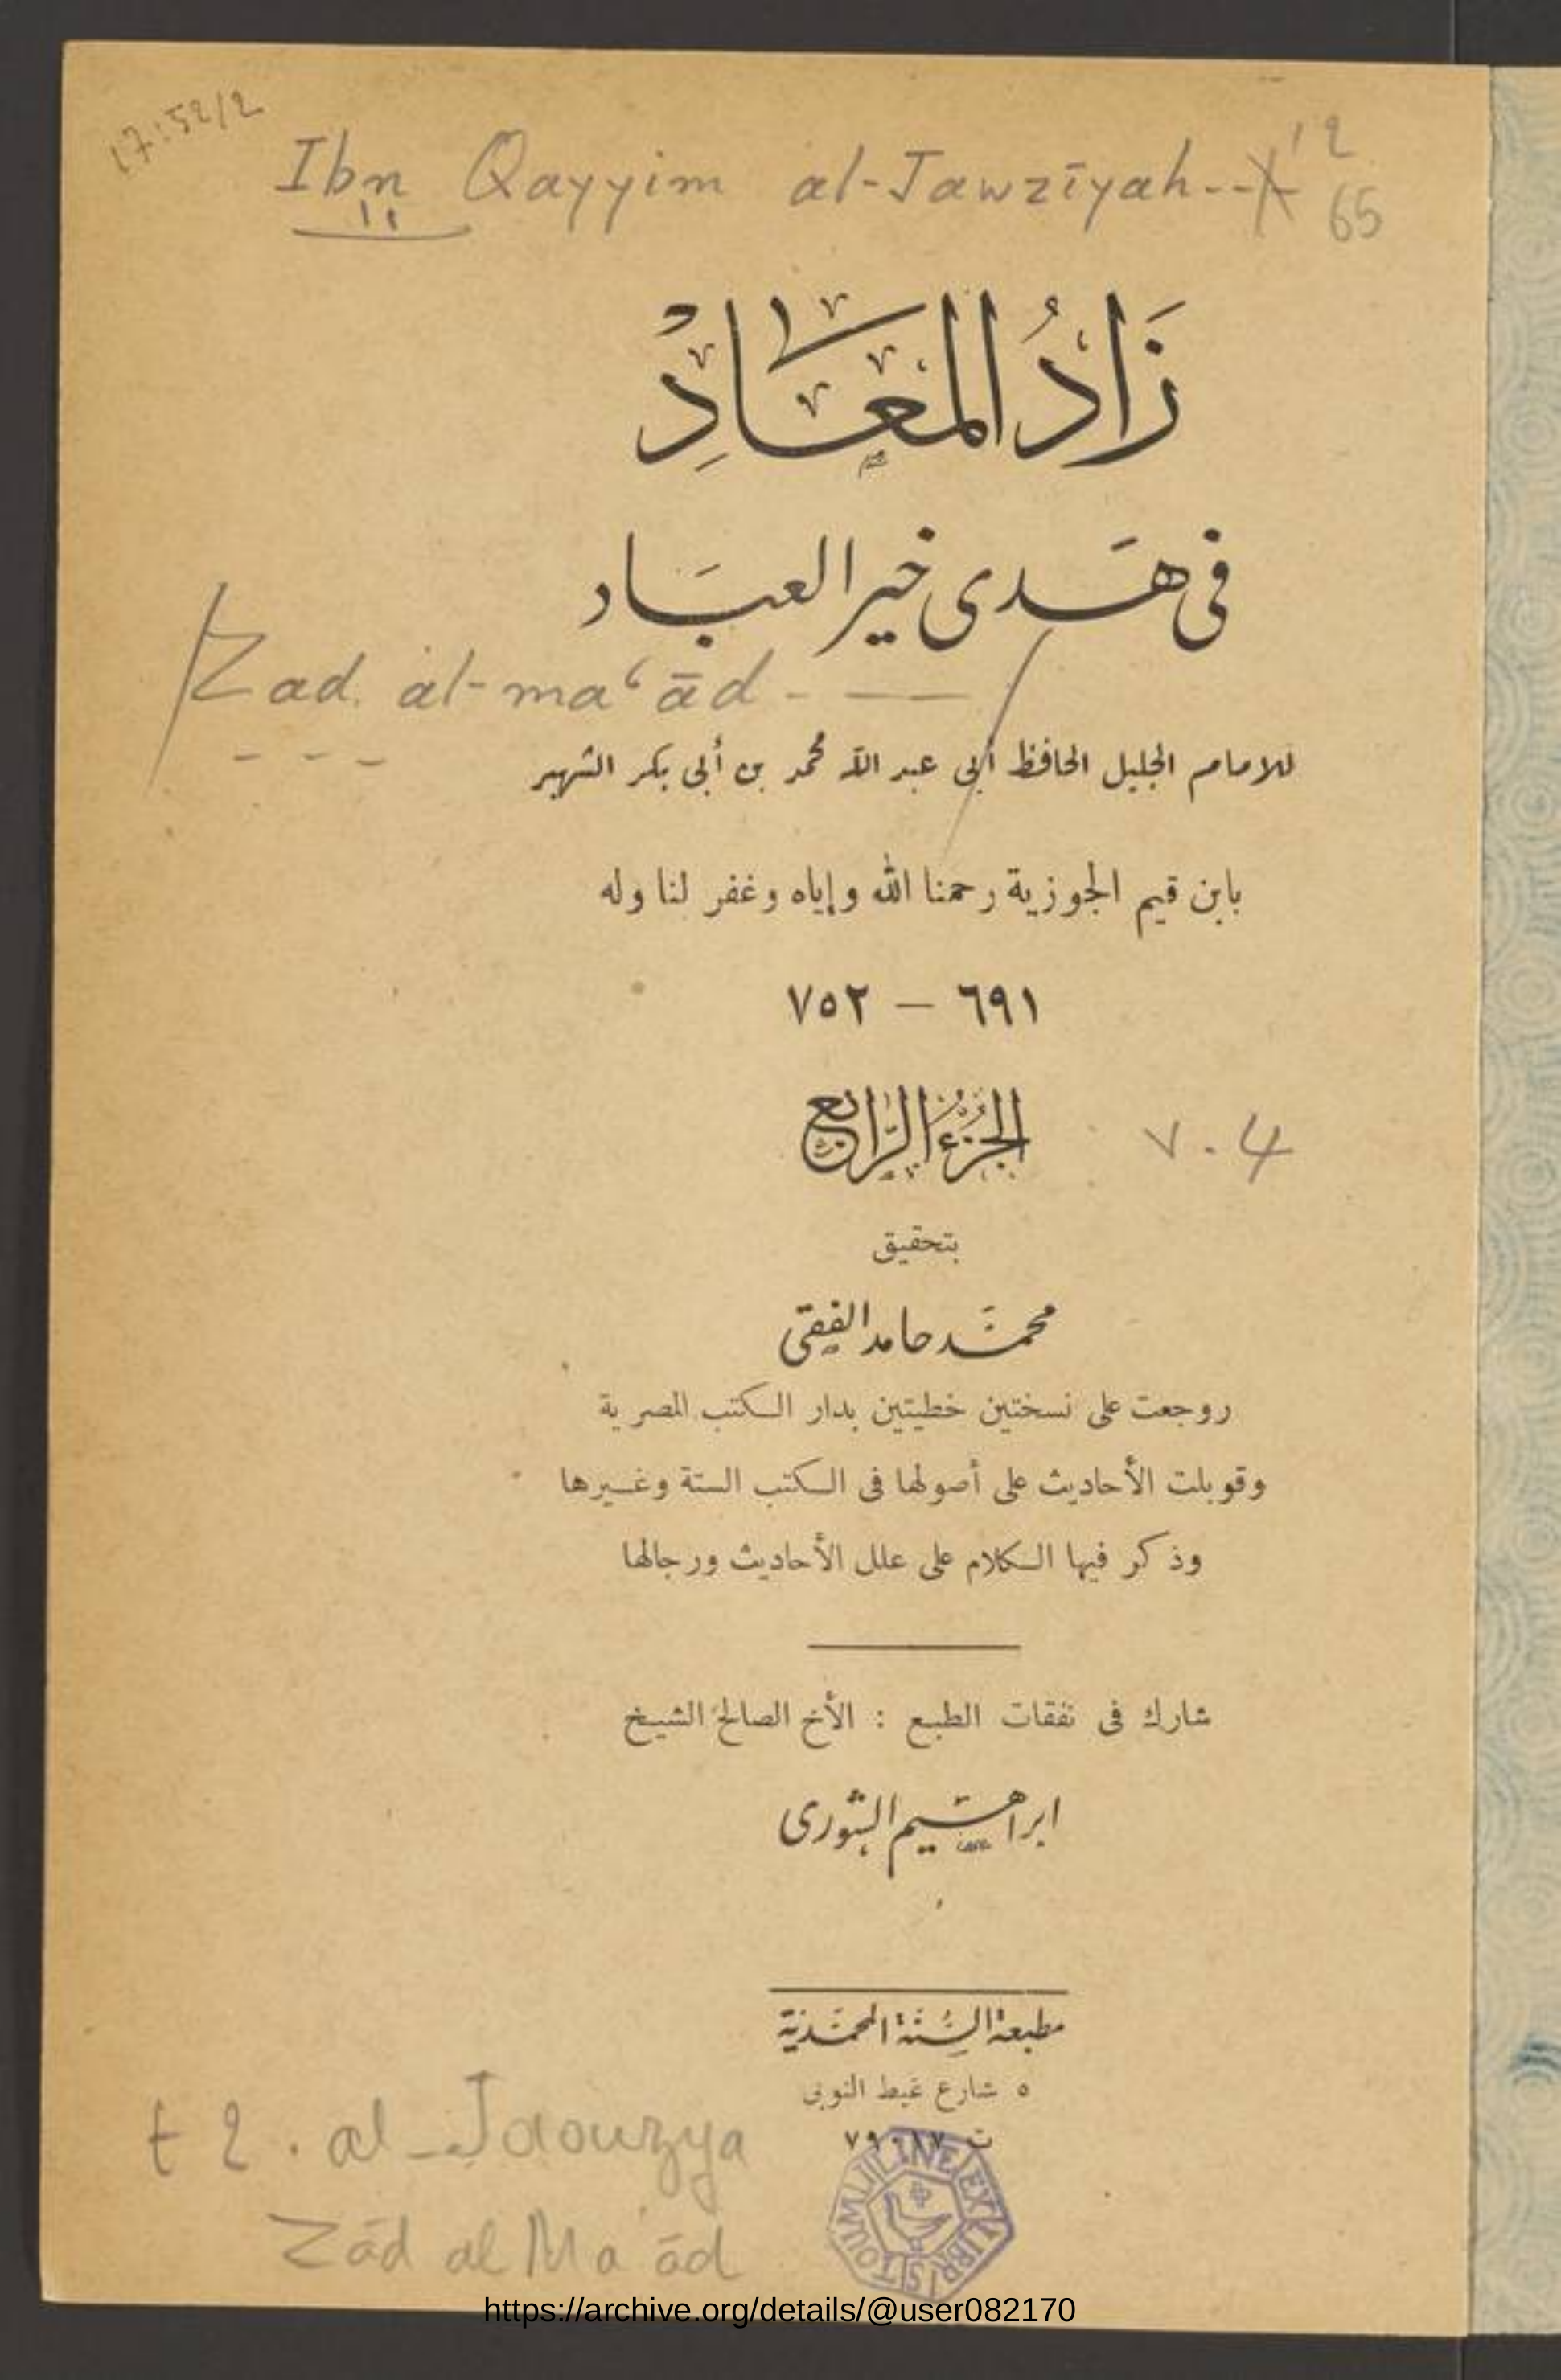 17:52/2
Ibn Qayyim al-Jawzīyah--
65
زَادُ المَعَادْ
فى هَدى خير العبَاد
Zad al-maʿād - —
للامام الجليل الحافظ أبى عبد الله محمد بن أبى بكر الشهير
بابن قيم الجوزية رحمنا الله وإياه وغفر لنا وله
٦٩١ – ٧٥٢
الجُزءُ الرَّابع
v. 4
بتحقيق
محمَّد حامد الفقى
روجعت على نسختين خطيتين بدار الكتب المصرية
وقوبلت الأحاديث على أصولها فى الكتب الستة وغيرها
وذكر فيها الكلام على علل الأحاديث ورجالها
شارك فى نفقات الطبع : الأخ الصالح الشيخ
ابراهيم الشورى
مطبعة السُّنَّة المحمَّديَّة
٥ شارع غيط النوبى
ت ٧٩٠١٧
t 2. al-Jaouzya
Zād al Ma'ād
TOUMLILINE EX LIBRIS
https://archive.org/details/@user082170